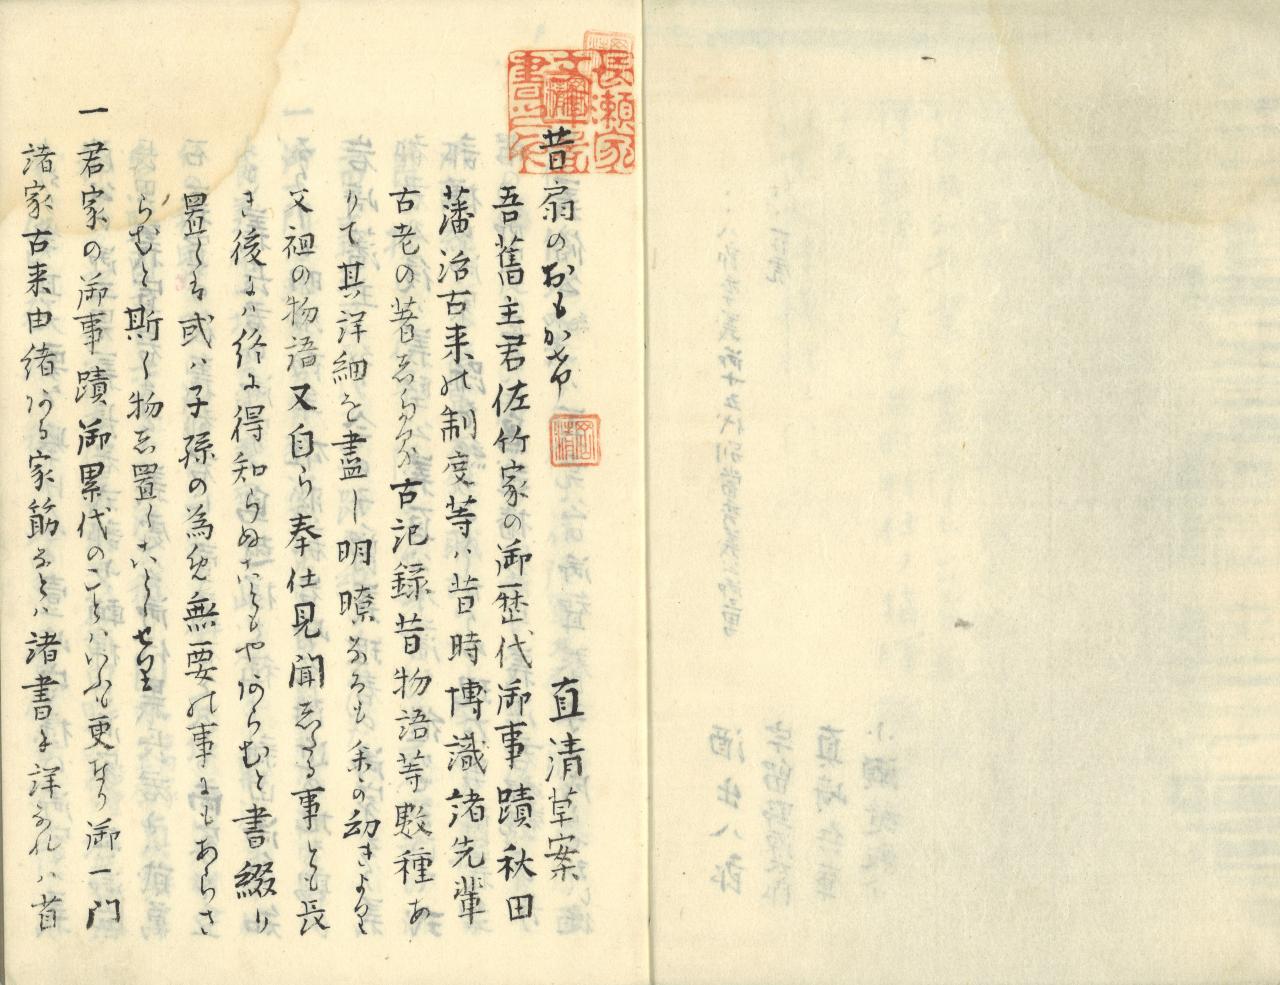 昔扇のおもかけ 直清草案
吾舊主君佐竹家の御歴代御事蹟秋田
藩治古来の制度等ハ昔時博識諸先輩
古老の昔志る留古記録昔物語等数種あ
りて其詳細を盡し明瞭なるも余の幼きより
父祖の物語又自ら奉仕見聞志たる事とも長
き後にハ終に得知らぬこともやあらむと書綴り
置しも或ハ子孫の為免無要の事にもあらさ
らむと斯く物志置くことゝせり
一 君家の御事蹟御累代のことハいふも更なり御一門
諸家古来由緒ある家筋なとハ諸書に詳なれハ省
長瀬家